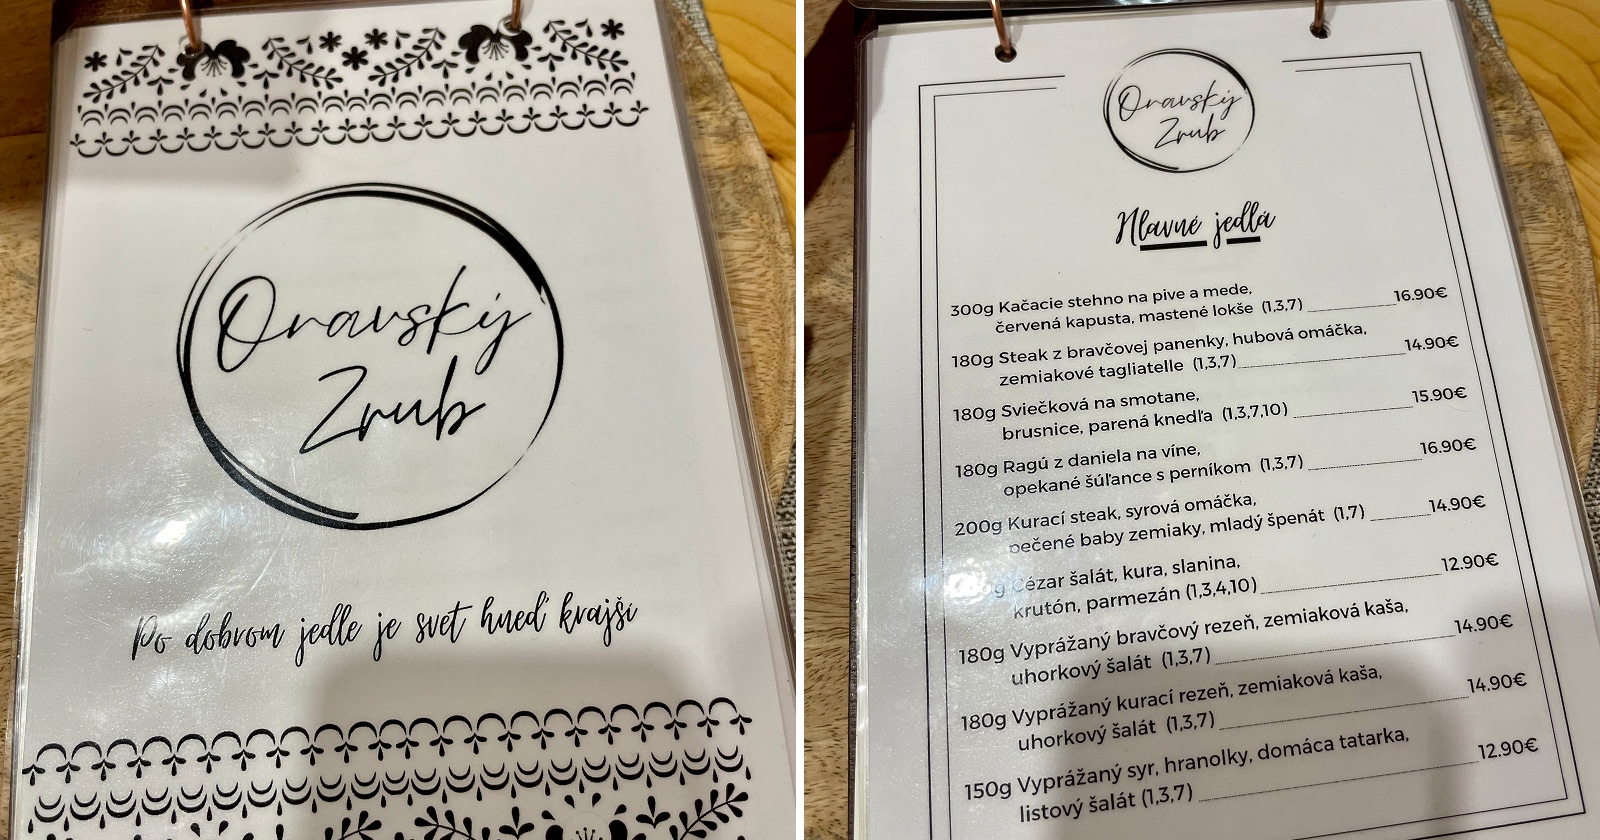 Oravský
Zrub
Po dobrom jedle je svet hneď krajší
Oravský
Zrub
Hlavné jedlá
300g Kačacie stehno na pive a mede,
červená kapusta, mastené lokše (1,3,7) 16.90€
180g Steak z bravčovej panenky, hubová omáčka,
zemiakové tagliatelle (1,3,7) 14.90€
180g Sviečková na smotane,
brusnice, parená knedľa (1,3,7,10) 15.90€
180g Ragú z daniela na víne,
opekané šúľance s perníkom (1,3,7) 16.90€
200g Kurací steak, syrová omáčka,
pečené baby zemiaky, mladý špenát (1,7) 14.90€
Cézar šalát, kura, slanina,
krutón, parmezán (1,3,4,10) 12.90€
180g Vyprážaný bravčový rezeň, zemiaková kaša,
uhorkový šalát (1,3,7) 14.90€
180g Vyprážaný kurací rezeň, zemiaková kaša,
uhorkový šalát (1,3,7) 14.90€
150g Vyprážaný syr, hranolky, domáca tatarka,
listový šalát (1,3,7) 12.90€